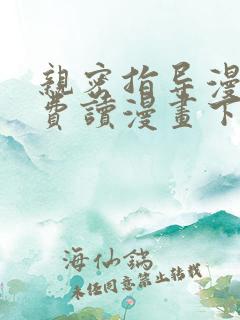 親密指导漫
費讀漫畫下
海仙鎬
未经同意禁止转载